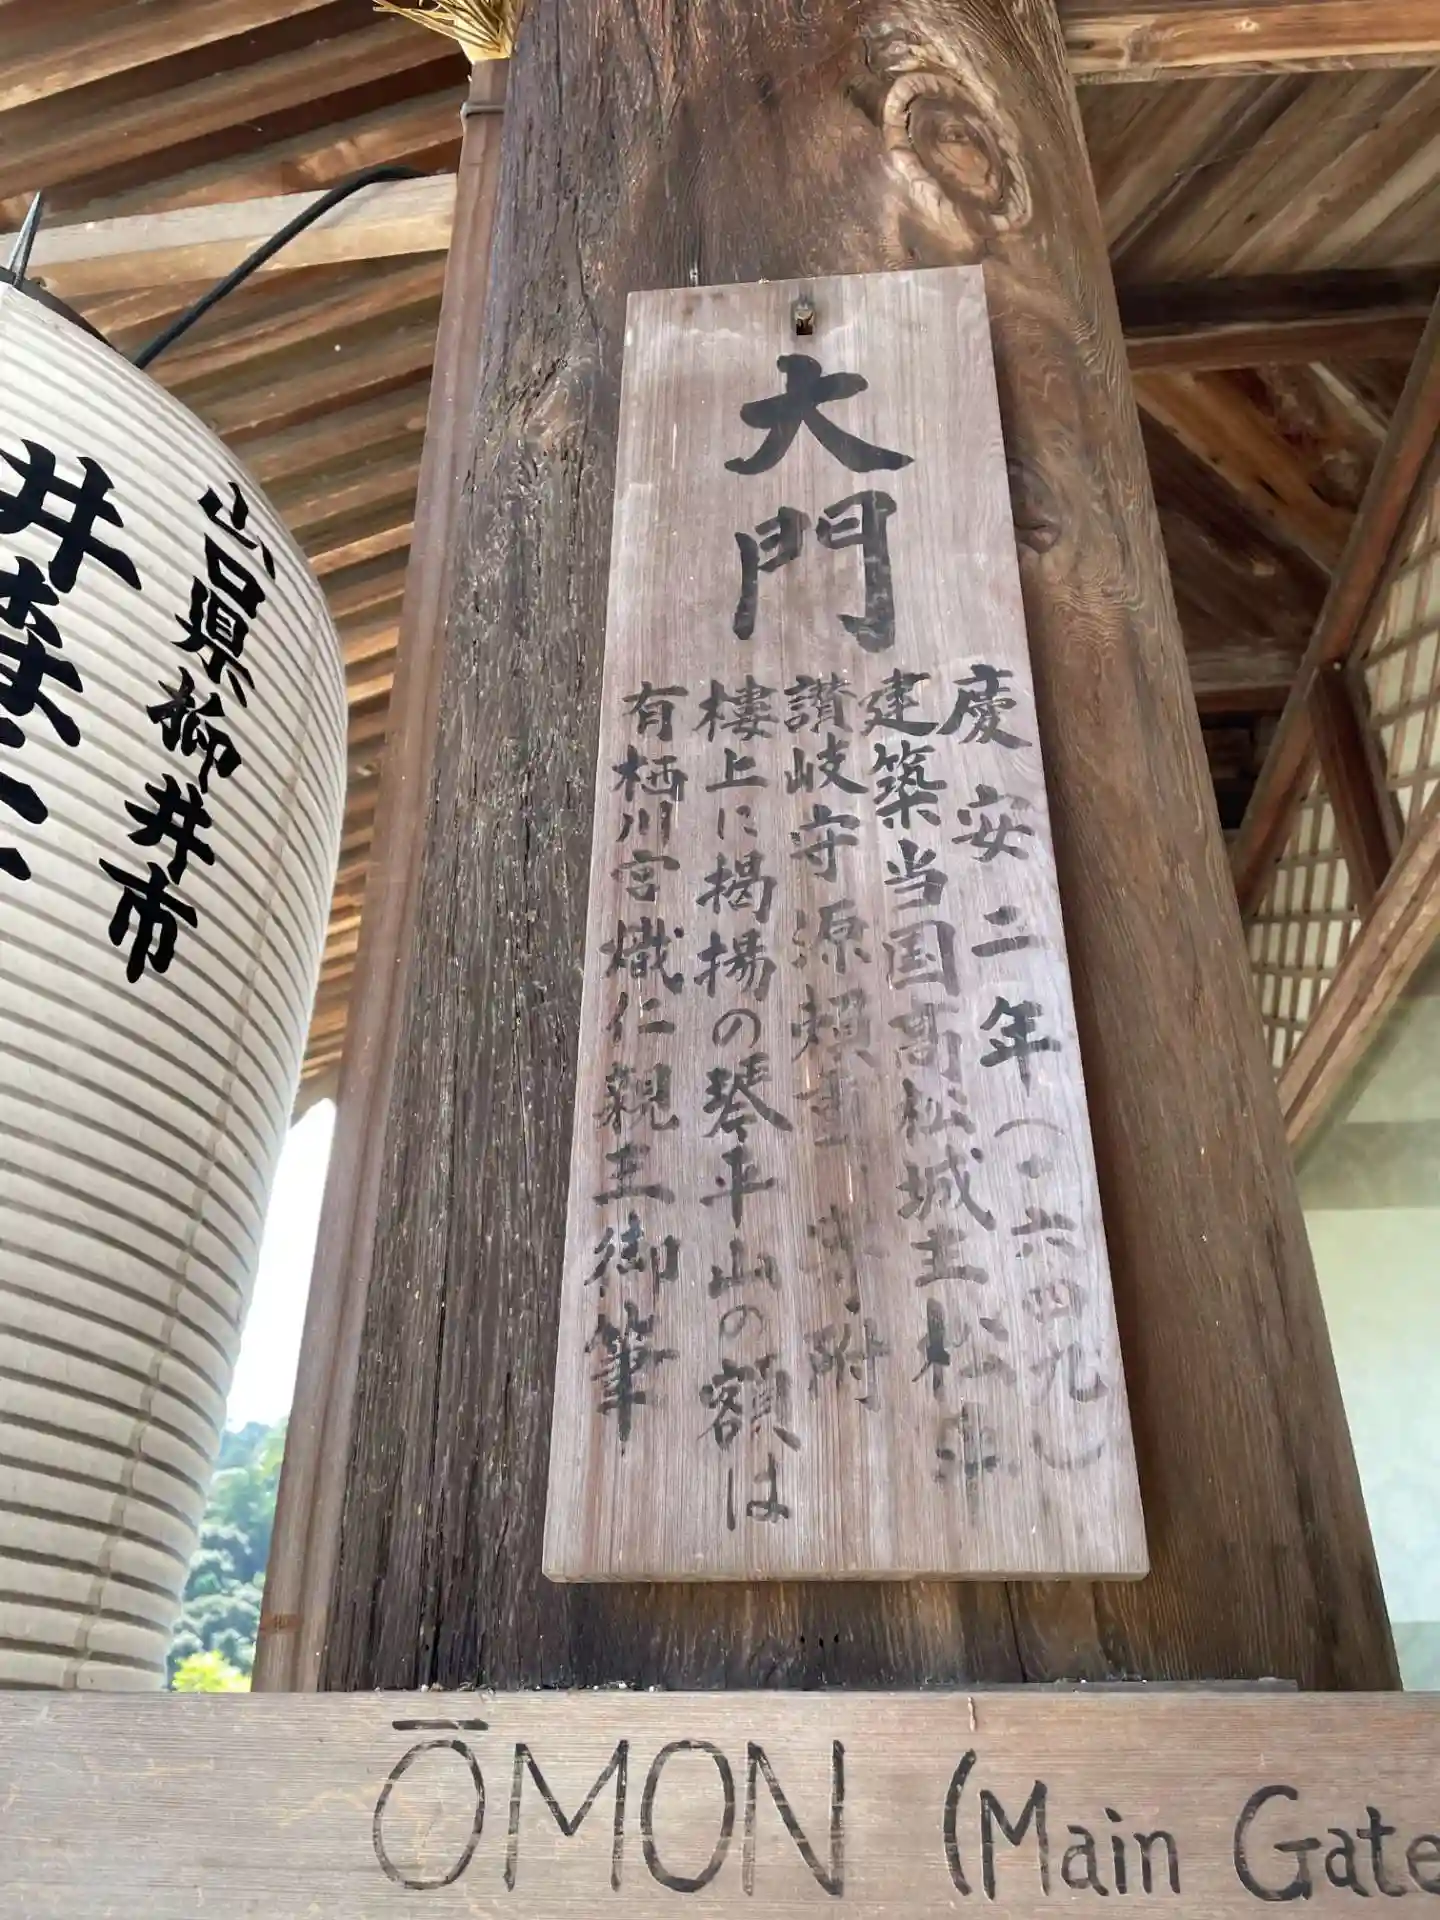 大門
慶安二年（一六四九）
建築当国高松城主松平
讃岐守源頼重
寄附
楼上に掲揚の琴平山の額は
有栖川宮熾仁親王御筆
山口県柳井市
井
ŌMON (Main Gate